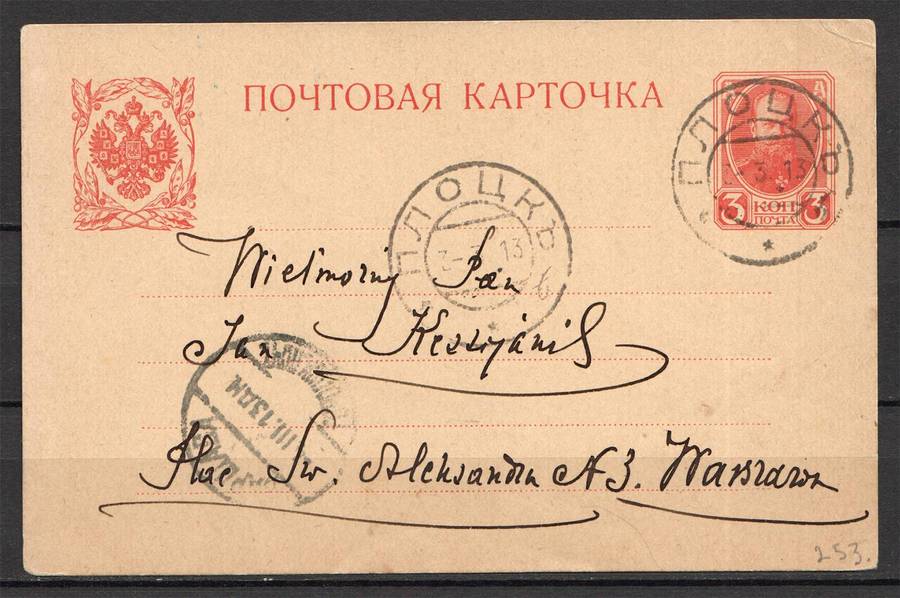 ПОЧТОВАЯ КАРТОЧКА
3 КОП 3
ПОЧТА
ПЛОЦКЪ
3. 13
ПЛОЦКЪ
3-3 13
Wielmożny Pan
Jan
III.13
Plac Św. Aleksandra N 3. Warszawa
253.